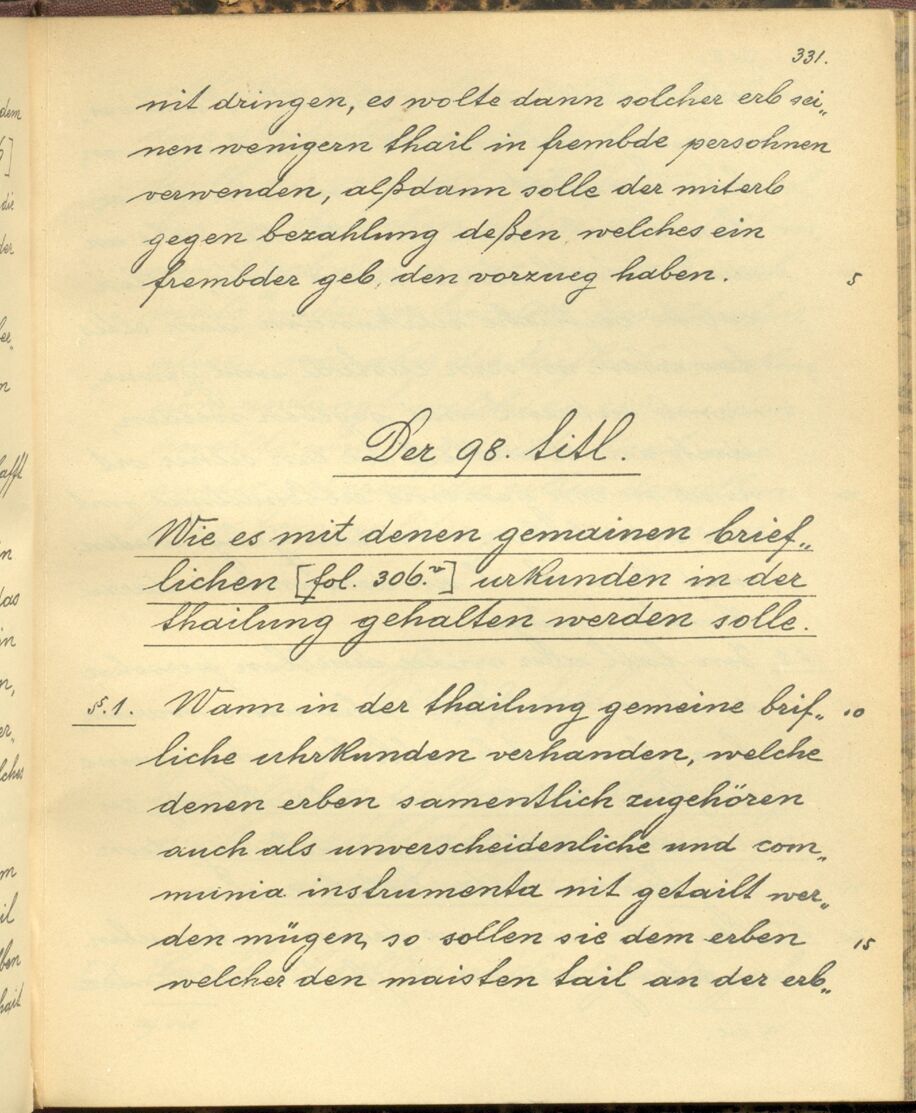 331.
nit dringen, es wolte dann solcher erb sei„
nen wenigern thail in frembde persohnen
verwenden, alßdann solle der miterb
gegen bezahlung deßen, welches ein
frembder geb, den vorzueg haben.
5
Der 98. titl.
Wie es mit denen gemainen brief„
lichen [fol. 306.v] urkunden in der
thailung gehalten werden solle.
§.1. Wann in der thailung gemeine brif„ 10
liche uhrkunden verhanden, welche
denen erben samentlich zugehören
auch als unverscheidenliche und com„
munia instrumenta nit getailt wer„
den mügen, so sollen sie dem erben 15
welcher den maisten tail an der erb„